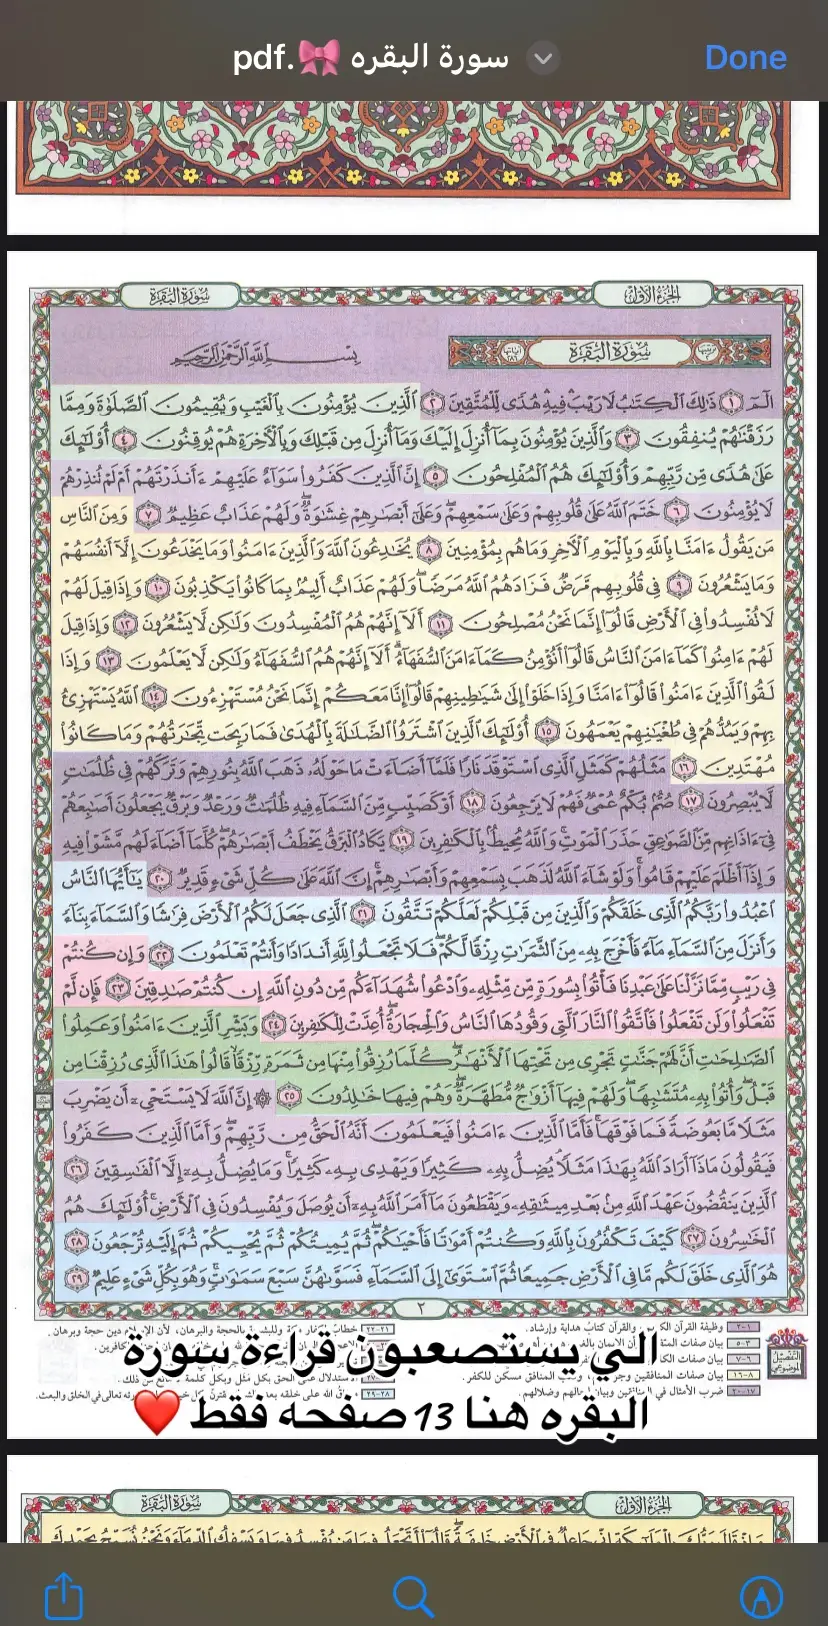 سورة البقره 🎀.pdf
Done
الجزء الأول
سورة البقرة
سورة البقرة
ترتيبها ٢
آياتها ٢٨٦
بِسْمِ ٱللَّهِ ٱلرَّحْمَٰنِ ٱلرَّحِيمِ
الٓمٓ ١ ذَٰلِكَ ٱلْكِتَٰبُ لَا رَيْبَ فِيهِ هُدًى لِّلْمُتَّقِينَ ٢ ٱلَّذِينَ يُؤْمِنُونَ بِٱلْغَيْبِ وَيُقِيمُونَ ٱلصَّلَوٰةَ وَمِمَّا
رَزَقْنَٰهُمْ يُنفِقُونَ ٣ وَٱلَّذِينَ يُؤْمِنُونَ بِمَآ أُنزِلَ إِلَيْكَ وَمَآ أُنزِلَ مِن قَبْلِكَ وَبِٱلْءَاخِرَةِ هُمْ يُوقِنُونَ ٤ أُو۟لَٰٓئِكَ
عَلَىٰ هُدًى مِّن رَّبِّهِمْ وَأُو۟لَٰٓئِكَ هُمُ ٱلْمُفْلِحُونَ ٥ إِنَّ ٱلَّذِينَ كَفَرُوا۟ سَوَآءٌ عَلَيْهِمْ ءَأَنذَرْتَهُمْ أَمْ لَمْ تُنذِرْهُمْ
لَا يُؤْمِنُونَ ٦ خَتَمَ ٱللَّهُ عَلَىٰ قُلُوبِهِمْ وَعَلَىٰ سَمْعِهِمْ وَعَلَىٰٓ أَبْصَٰرِهِمْ غِشَٰوَةٌ وَلَهُمْ عَذَابٌ عَظِيمٌ ٧ وَمِنَ ٱلنَّاسِ
مَن يَقُولُ ءَامَنَّا بِٱللَّهِ وَبِٱلْيَوْمِ ٱلْءَاخِرِ وَمَا هُم بِمُؤْمِنِينَ ٨ يُخَٰدِعُونَ ٱللَّهَ وَٱلَّذِينَ ءَامَنُوا۟ وَمَا يَخْدَعُونَ إِلَّآ أَنفُسَهُمْ
وَمَا يَشْعُرُونَ ٩ فِى قُلُوبِهِم مَّرَضٌ فَزَادَهُمُ ٱللَّهُ مَرَضًا وَلَهُمْ عَذَابٌ أَلِيمٌۢ بِمَا كَانُوا۟ يَكْذِبُونَ ١٠ وَإِذَا قِيلَ لَهُمْ
لَا تُفْسِدُوا۟ فِى ٱلْأَرْضِ قَالُوٓا۟ إِنَّمَا نَحْنُ مُصْلِحُونَ ١١ أَلَآ إِنَّهُمْ هُمُ ٱلْمُفْسِدُونَ وَلَٰكِن لَّا يَشْعُرُونَ ١٢ وَإِذَا قِيلَ
لَهُمْ ءَامِنُوا۟ كَمَآ ءَامَنَ ٱلنَّاسُ قَالُوٓا۟ أَنُؤْمِنُ كَمَآ ءَامَنَ ٱلسُّفَهَآءُ أَلَآ إِنَّهُمْ هُمُ ٱلسُّفَهَآءُ وَلَٰكِن لَّا يَعْلَمُونَ ١٣ وَإِذَا
لَقُوا۟ ٱلَّذِينَ ءَامَنُوا۟ قَالُوٓا۟ ءَامَنَّا وَإِذَا خَلَوْا۟ إِلَىٰ شَيَٰطِينِهِمْ قَالُوٓا۟ إِنَّا مَعَكُمْ إِنَّمَا نَحْنُ مُسْتَهْزِءُونَ ١٤ ٱللَّهُ يَسْتَهْزِئُ
بِهِمْ وَيَمُدُّهُمْ فِى طُغْيَٰنِهِمْ يَعْمَهُونَ ١٥ أُو۟لَٰٓئِكَ ٱلَّذِينَ ٱشْتَرَوُا۟ ٱلضَّلَٰلَةَ بِٱلْهُدَىٰ فَمَا رَبِحَت تِّجَٰرَتُهُمْ وَمَا كَانُوا۟
مُهْتَدِينَ ١٦ مَثَلُهُمْ كَمَثَلِ ٱلَّذِى ٱسْتَوْقَدَ نَارًا فَلَمَّآ أَضَآءَتْ مَا حَوْلَهُۥ ذَهَبَ ٱللَّهُ بِنُورِهِمْ وَتَرَكَهُمْ فِى ظُلُمَٰتٍ
لَّا يُبْصِرُونَ ١٧ صُمٌّۢ بُكْمٌ عُمْىٌ فَهُمْ لَا يَرْجِعُونَ ١٨ أَوْ كَصَيِّبٍ مِّنَ ٱلسَّمَآءِ فِيهِ ظُلُمَٰتٌ وَرَعْدٌ وَبَرْقٌ يَجْعَلُونَ أَصَٰبِعَهُمْ
فِىٓ ءَاذَانِهِم مِّنَ ٱلصَّوَٰعِقِ حَذَرَ ٱلْمَوْتِ وَٱللَّهُ مُحِيطٌۢ بِٱلْكَٰفِرِينَ ١٩ يَكَادُ ٱلْبَرْقُ يَخْطَفُ أَبْصَٰرَهُمْ كُلَّمَآ أَضَآءَ لَهُم مَّشَوْا۟ فِيهِ
وَإِذَآ أَظْلَمَ عَلَيْهِمْ قَامُوا۟ وَلَوْ شَآءَ ٱللَّهُ لَذَهَبَ بِسَمْعِهِمْ وَأَبْصَٰرِهِمْ إِنَّ ٱللَّهَ عَلَىٰ كُلِّ شَىْءٍ قَدِيرٌ ٢٠ يَٰٓأَيُّهَا ٱلنَّاسُ
ٱعْبُدُوا۟ رَبَّكُمُ ٱلَّذِى خَلَقَكُمْ وَٱلَّذِينَ مِن قَبْلِكُمْ لَعَلَّكُمْ تَتَّقُونَ ٢١ ٱلَّذِى جَعَلَ لَكُمُ ٱلْأَرْضَ فِرَٰشًا وَٱلسَّمَآءَ بِنَآءً
وَأَنزَلَ مِنَ ٱلسَّمَآءِ مَآءً فَأَخْرَجَ بِهِۦ مِنَ ٱلثَّمَرَٰتِ رِزْقًا لَّكُمْ فَلَا تَجْعَلُوا۟ لِلَّهِ أَندَادًا وَأَنتُمْ تَعْلَمُونَ ٢٢ وَإِن كُنتُمْ
فِى رَيْبٍ مِّمَّا نَزَّلْنَا عَلَىٰ عَبْدِنَا فَأْتُوا۟ بِسُورَةٍ مِّن مِّثْلِهِۦ وَٱدْعُوا۟ شُهَدَآءَكُم مِّن دُونِ ٱللَّهِ إِن كُنتُمْ صَٰدِقِينَ ٢٣ فَإِن لَّمْ
تَفْعَلُوا۟ وَلَن تَفْعَلُوا۟ فَٱتَّقُوا۟ ٱلنَّارَ ٱلَّتِى وَقُودُهَا ٱلنَّاسُ وَٱلْحِجَارَةُ أُعِدَّتْ لِلْكَٰفِرِينَ ٢٤ وَبَشِّرِ ٱلَّذِينَ ءَامَنُوا۟ وَعَمِلُوا۟
ٱلصَّٰلِحَٰتِ أَنَّ لَهُمْ جَنَّٰتٍ تَجْرِى مِن تَحْتِهَا ٱلْأَنْهَٰرُ كُلَّمَا رُزِقُوا۟ مِنْهَا مِن ثَمَرَةٍ رِّزْقًا قَالُوا۟ هَٰذَا ٱلَّذِى رُزِقْنَا مِن
قَبْلُ وَأُتُوا۟ بِهِۦ مُتَشَٰبِهًا وَلَهُمْ فِيهَآ أَزْوَٰجٌ مُّطَهَّرَةٌ وَهُمْ فِيهَا خَٰلِدُونَ ٢٥ ۞ إِنَّ ٱللَّهَ لَا يَسْتَحْىِۦٓ أَن يَضْرِبَ
مَثَلًا مَّا بَعُوضَةً فَمَا فَوْقَهَا فَأَمَّا ٱلَّذِينَ ءَامَنُوا۟ فَيَعْلَمُونَ أَنَّهُ ٱلْحَقُّ مِن رَّبِّهِمْ وَأَمَّا ٱلَّذِينَ كَفَرُوا۟
فَيَقُولُونَ مَاذَآ أَرَادَ ٱللَّهُ بِهَٰذَا مَثَلًا يُضِلُّ بِهِۦ كَثِيرًا وَيَهْدِى بِهِۦ كَثِيرًا وَمَا يُضِلُّ بِهِۦٓ إِلَّا ٱلْفَٰسِقِينَ ٢٦
ٱلَّذِينَ يَنقُضُونَ عَهْدَ ٱللَّهِ مِنۢ بَعْدِ مِيثَٰقِهِۦ وَيَقْطَعُونَ مَآ أَمَرَ ٱللَّهُ بِهِۦٓ أَن يُوصَلَ وَيُفْسِدُونَ فِى ٱلْأَرْضِ أُو۟لَٰٓئِكَ هُمُ
ٱلْخَٰسِرُونَ ٢٧ كَيْفَ تَكْفُرُونَ بِٱللَّهِ وَكُنتُمْ أَمْوَٰتًا فَأَحْيَٰكُمْ ثُمَّ يُمِيتُكُمْ ثُمَّ يُحْيِيكُمْ ثُمَّ إِلَيْهِ تُرْجَعُونَ ٢٨
هُوَ ٱلَّذِى خَلَقَ لَكُم مَّا فِى ٱلْأَرْضِ جَمِيعًا ثُمَّ ٱسْتَوَىٰٓ إِلَى ٱلسَّمَآءِ فَسَوَّىٰهُنَّ سَبْعَ سَمَٰوَٰتٍ وَهُوَ بِكُلِّ شَىْءٍ عَلِيمٌ ٢٩
٢
التفصيل الموضوعي
١-٢ وظيفة القرآن والقرآن كتاب هداية وإرشاد.
٣-٥ بيان صفات
٦-٧ بيان صفات
٨-١٦ بيان صفات المنافقين مسكن للكفر.
١٧-٢٠ ضرب الأمثال في المنافقين وبيان حالهم وضلالهم.
٢١-٢٢ بالحجة والبرهان، لأن دين حجة وبرهان.
٢٨-٢٩ الله على خلقه في الخلق والبعث.
الي يستصعبون قراءة سورة
البقره هنا 13 صفحه فقط❤️
الجزء الأول
سورة البقرة